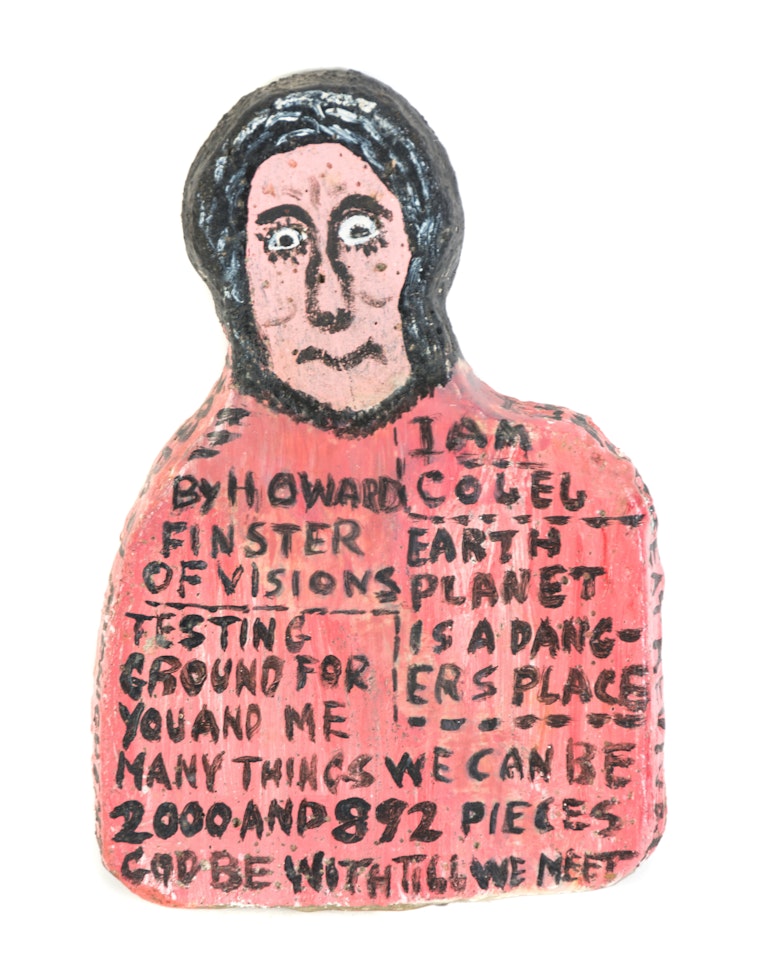 I AM
COLEL
BY HOWARD
FINSTER
OF VISIONS
EARTH
PLANET
IS A DANG-
ERS PLACE
TESTING
GROUND FOR
YOU AND ME
MANY THINGS WE CAN BE
2000.AND 892 PIECES
GOD BE WITH TILL WE MEET